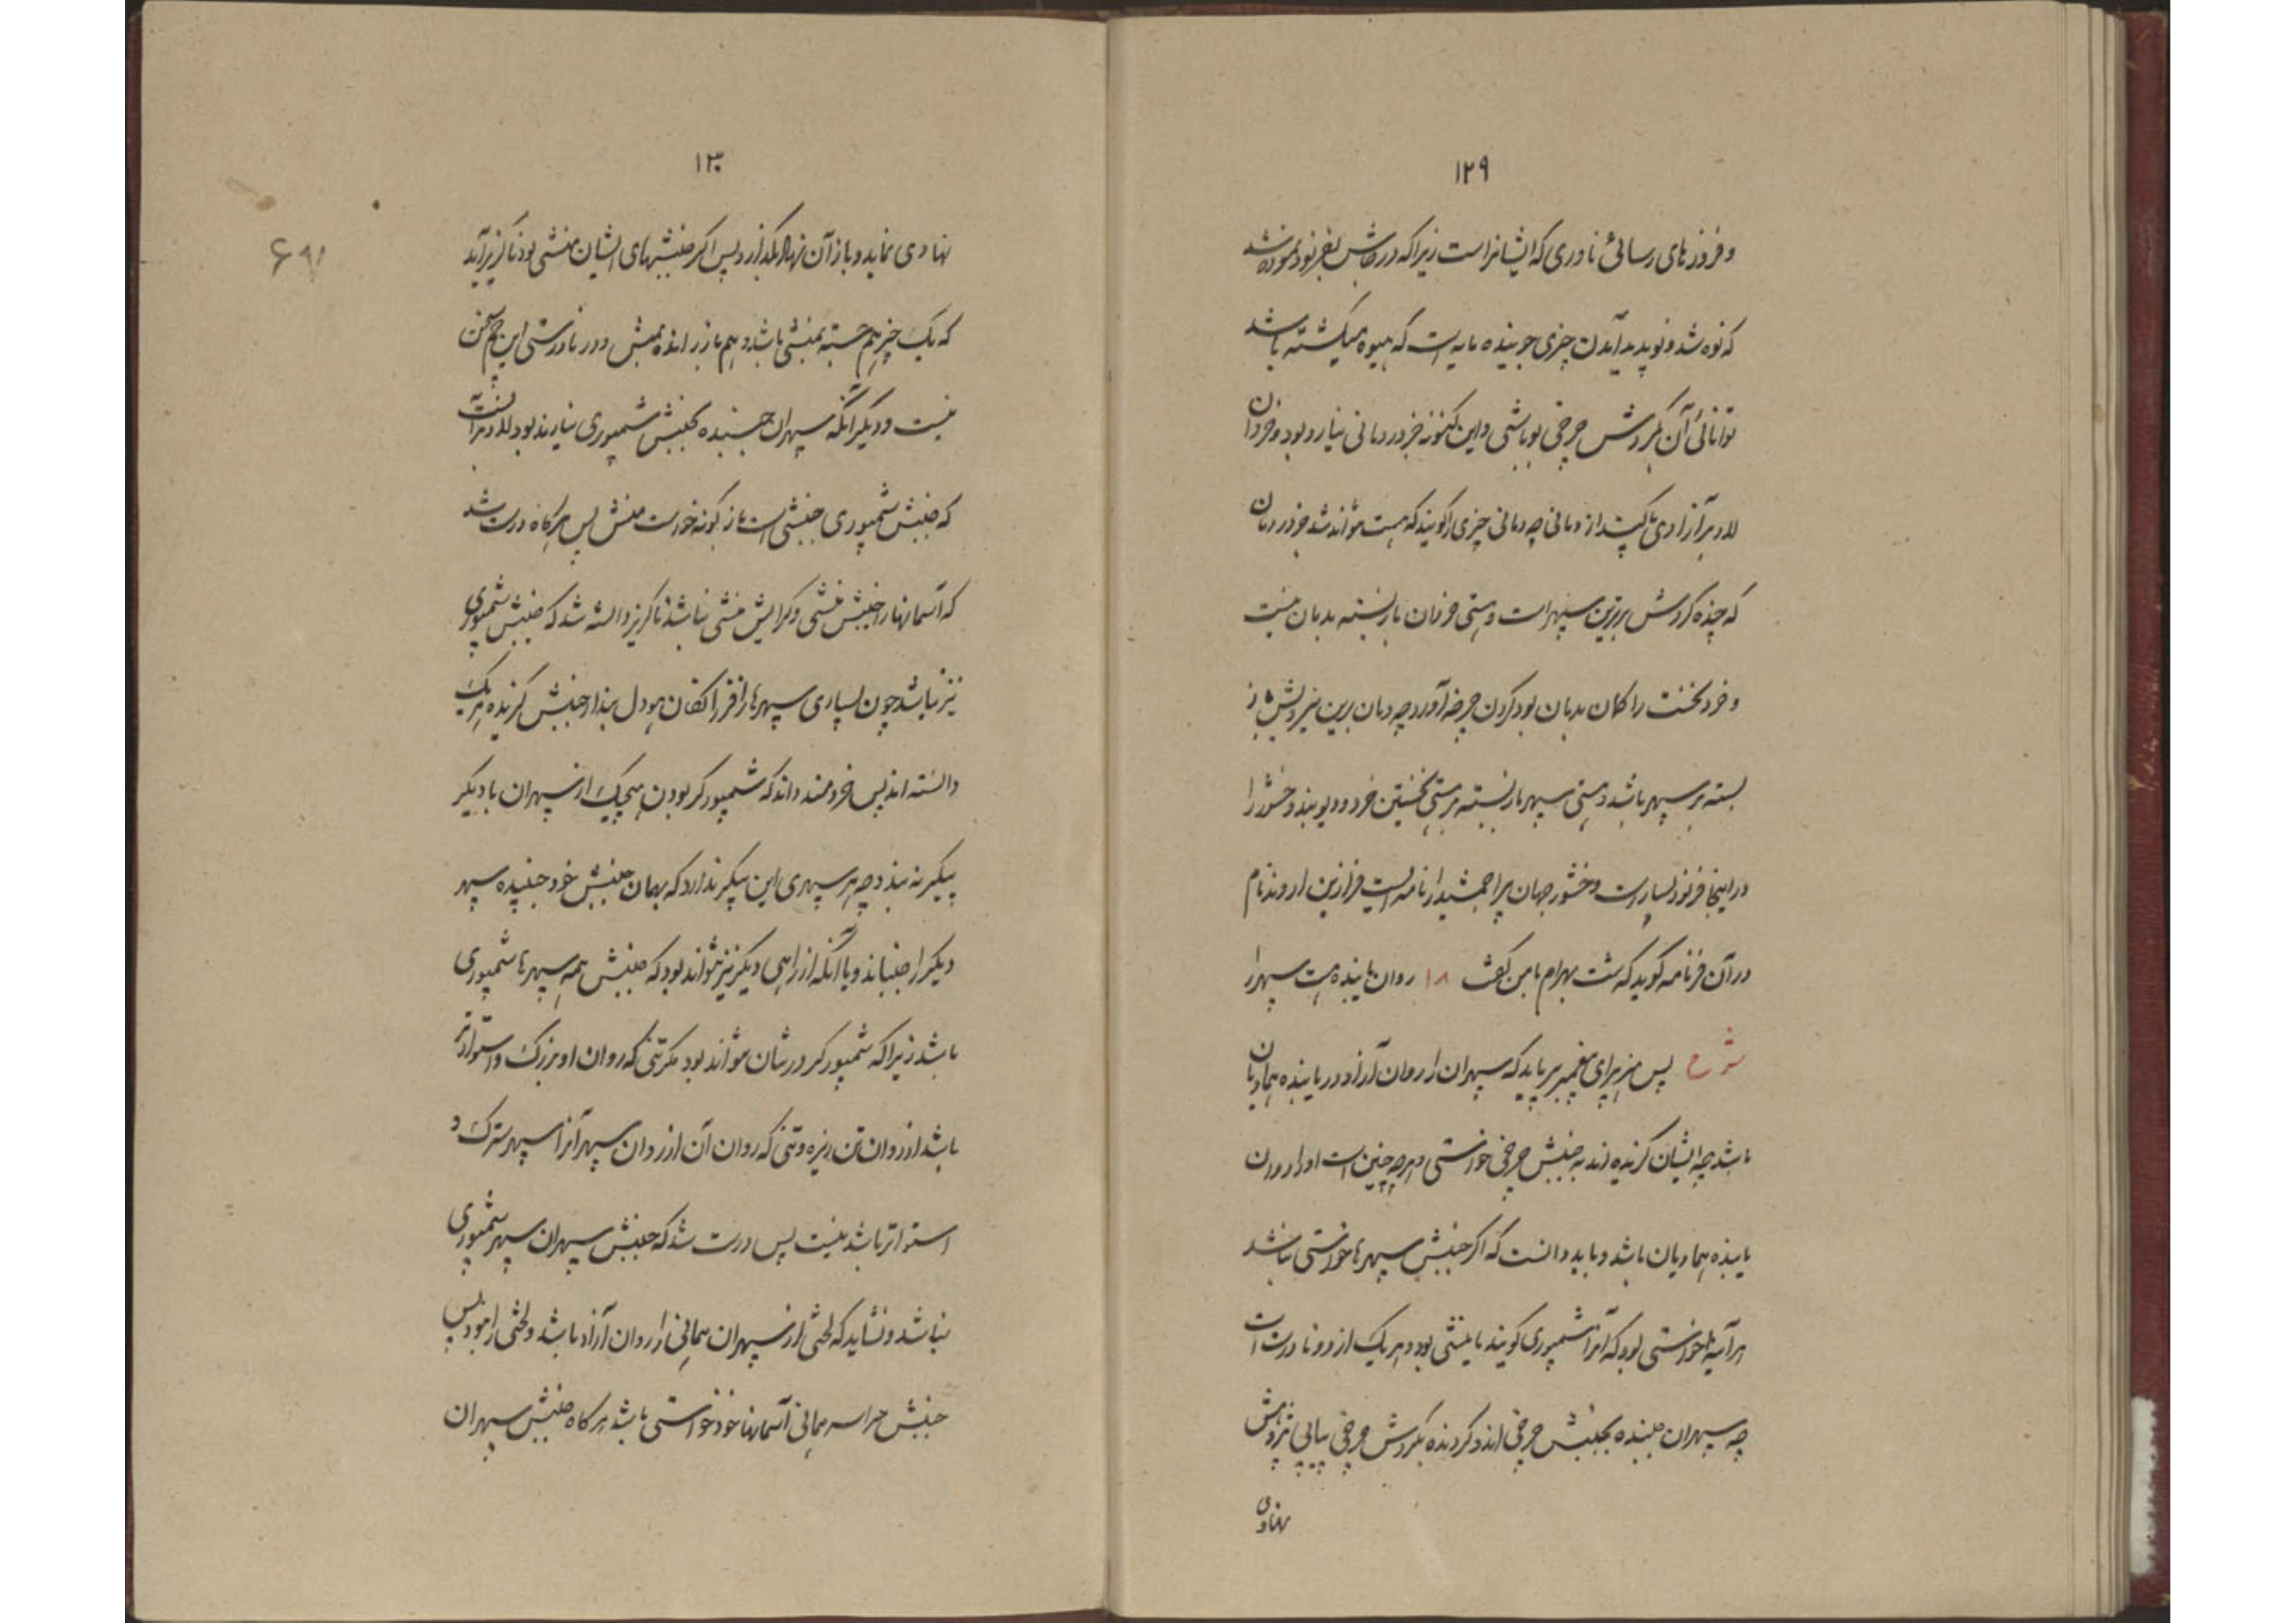 ۱۲۹
و فروزهای رسائی ناوری که ایشانراست زیراکه در جایش بفرنود نموده شد
که نوه شد و نو پدید آمدن چیزی جوینده مایه است که همیشه باشد
توانائی آن گردش چرخی بوباشی و این کنونه خبر در زمانی نیارد بود و خردان
آزادی پاکیست از زمانی چه زمانی چیزی را گویند که هست نتواند شد جز در زمان
که چنده گردش برترین سپهر است و هستی خردان باز بسته بدان نیست
و خرد نخست را گمان بدان بود کردن چرخه آورد چه زمان برین نیز
بسته بر سپهر باشد و هستی سپهر باز بسته بر هستی نخستین خرد و وخشور را
در اینجا فرنود بسیارست وخشور جهان پیرا جمشید را نامه ایست فرازین اروند نام
در آن فرنامه گوید که شت بهرام با من گفت ۱۸ روان پاینده هست سپهر را
شرح پس میفرماید که سپهران را روان آزاد دریابنده همادیان
باشد چه ایشان گردنده اند به جنبش چرخی خواستی و هرچه چنین است او را روان
یابنده همادیان باشد و باید دانست که اگر جنبش سپهرها خواستی نباشد
هرآینه یا خواستی بود که آنرا شمپوری گویند یا منشی بود و هریک از دو نادرست است
چه سپهران جنبنده بجنبش چرخی اند و گردنده بگردش چرخی پیاپی پژوهش
نهادی
۱۳۰
نهادی نماید و باز آن نهاد بگذارد پس اگر جنبشهای ایشان منشی بود ناگزیر آید
که یک چیز هم خسته منشی باشد و هم باز رانده منش و در نادرستی این هیچ سخن
نیست و دیگر آنکه سپهران جنبنده بجنبش شمپوری نیارند بود
که جنبش شمپوری جنبشی است باز گونه خواست منش پس هرگاه درست شد
که آسمانها را جنبش منشی و گرایش منشی نباشد ناگزیر دانسته شد که جنبش شمپوری
نیز نباشد چون بسیاری سپهرها را فرزانگان بدل پندار جنبش گزیده هریک
دانسته اند پس خردمند داند که شمپورگر بودن هیچیک از سپهران با دیگر
پیکر نه بندد چه هر سپهری این پیکر ندارد که بهمان جنبش خود جنبیده سپهر
دیگر را جنباند و یا آنکه از راهی دیگر نیز نتواند بود که جنبش همه سپهرها شمپوری
باشد زیراکه شمپورگر در شان نتواند بود مگر تنی که روان او بزرگ و استوارتر
باشد از روان تن ریزه و تنی که روان آن از روان سپهر آنرا سپهر سترگ و
استوارتر باشد نیست پس درست شد که جنبش سپهران سپهر شمپوری
نباشد و نشاید که لختی از سپهران همانی را روان آزاد باشد و لختی را نبود پس
جنبش سراسر همانی آسمانها خود خواستی باشد هرگاه جنبش سپهران